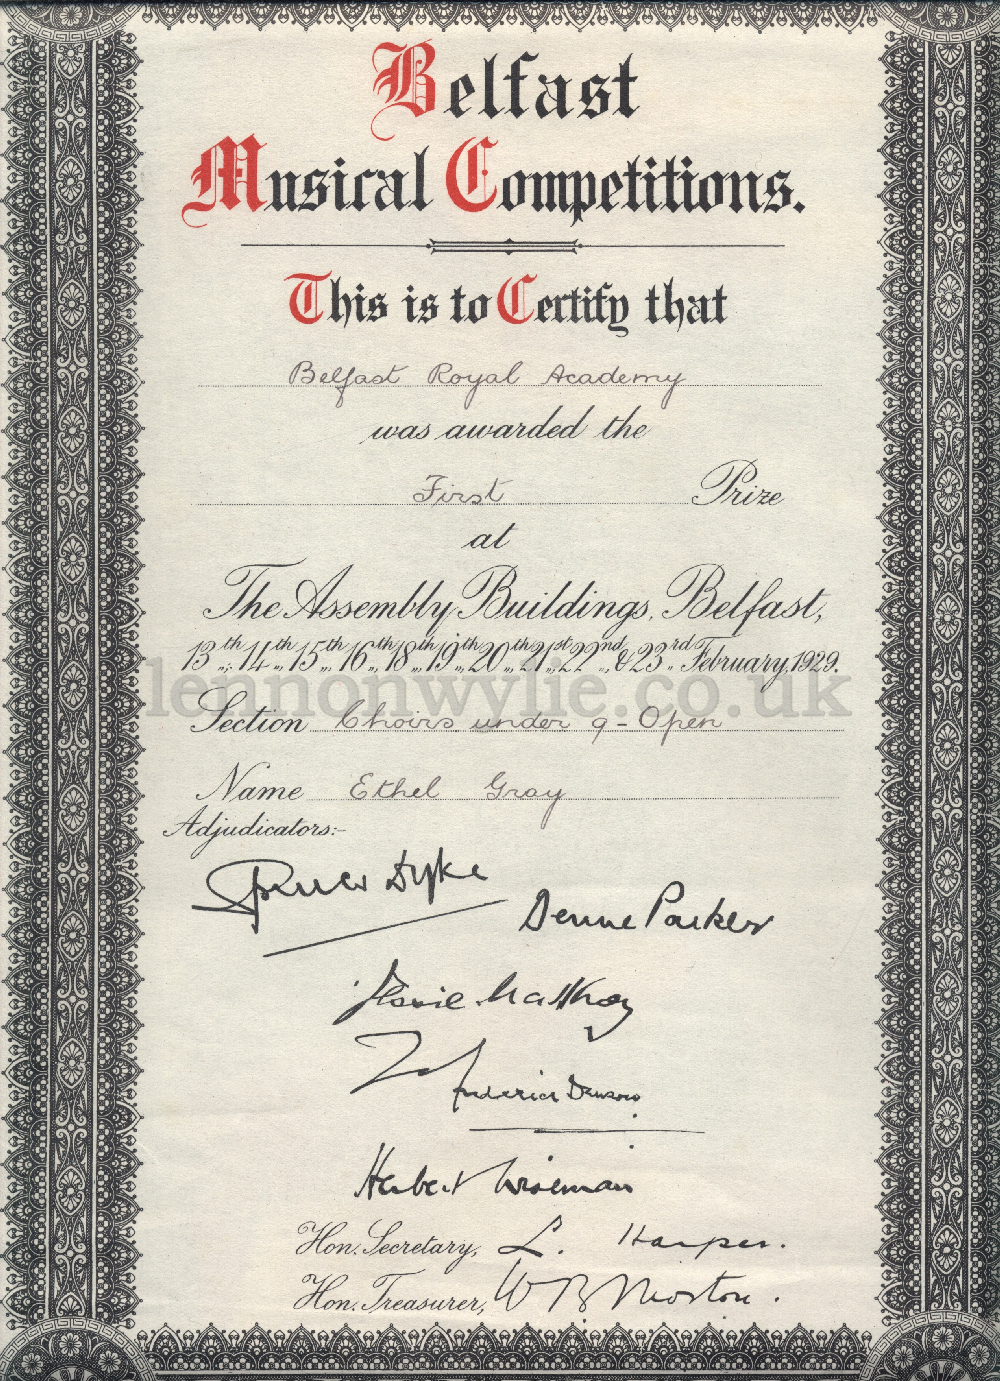 Belfast
Musical Competitions.
This is to Certify that
Belfast Royal Academy
was awarded the
First Prize
at
The Assembly Buildings, Belfast,
13th, 14th, 15th, 16th, 18th, 19th, 20th, 21st, 22nd, & 23rd February, 1929.
lennonwylie.co.uk
Section Choirs under 9 - Open
Name Ethel Gray
Adjudicators:-
Dyke
Denne Parker
Frederic Dawson
Herbert Wiseman
Hon. Secretary, L. Harper.
Hon. Treasurer, W B Morton.